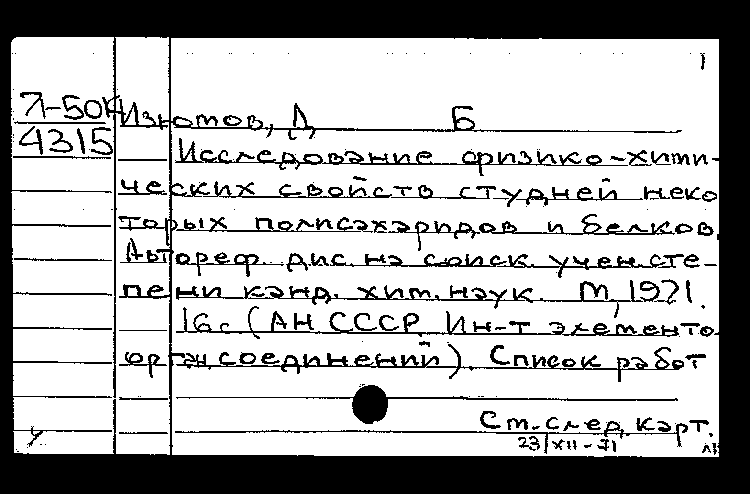 1
71-50К Изнотов, Д. Б
4315
Исследование физико-хими-
ческих свойств студней неко
торых полисахаридов и белков.
Автореф. дис. на соиск. учен. сте-
пени канд. хим. наук. М, 1971.
16с (АН СССР. Ин-т элементо
орган. соединений). Список работ
См. след. карт.
23/XII-71